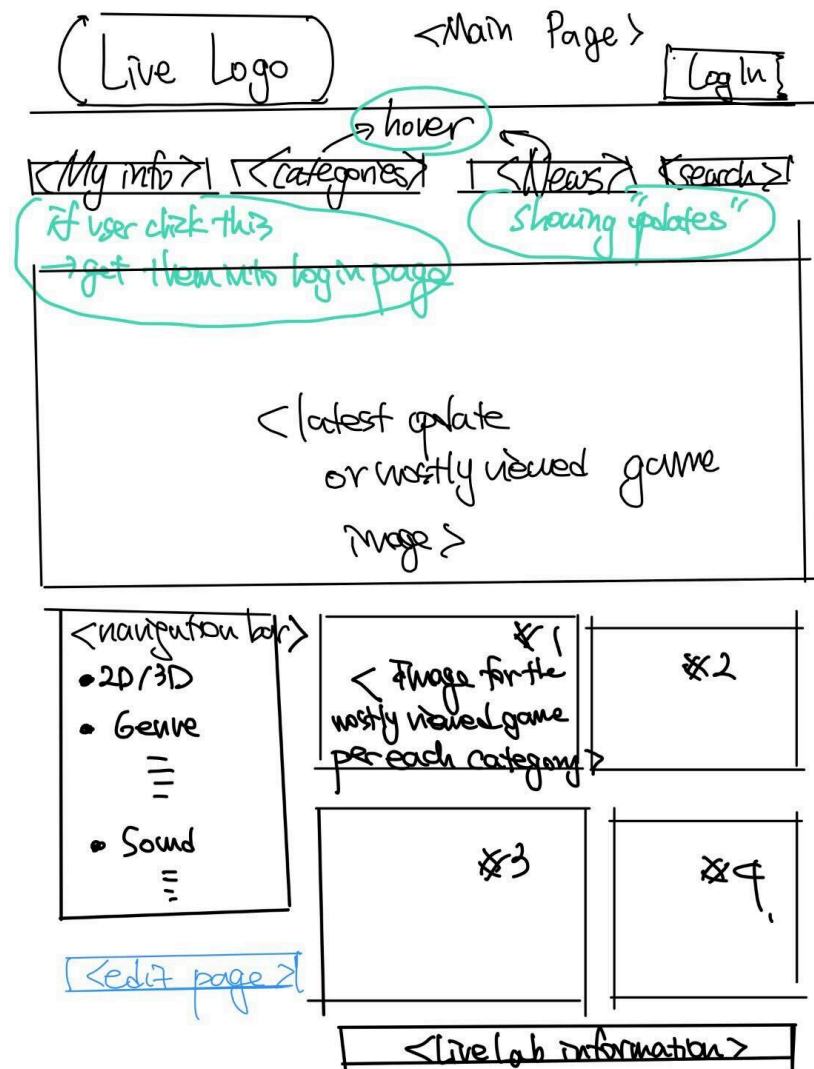 <Main Page>
Live Logo
Log In
hover
<My info>
<categories>
<News>
<search>
if user click this
→get them into login page
showing "updates"
<latest update
or mostly viewed game
image>
<navigation bar>
•2D/3D
• Genre
• Sound
※1
< Image for the
mostly viewed game
per each category>
※2
※3
※4
<edit page>
<Live lab information>